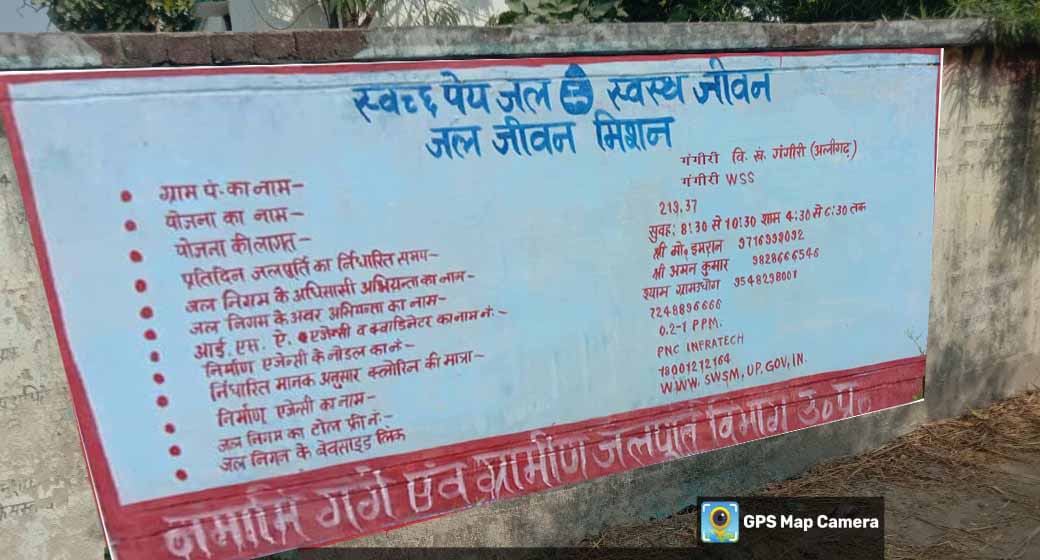 स्वच्छ पेय जल स्वस्थ जीवन
जल जीवन मिशन
ग्राम पं. का नाम- गंगीरी वि. खं. गंगीरी (अलीगढ़)
योजना का नाम- गंगीरी WSS
योजना की लागत- 219.37
प्रतिदिन जलपूर्ति का निर्धारित समय- सुवह: 8:30 से 10:30 शाम 4:30 से 6:30 तक
जल निगम के अधिसासी अभियन्ता का नाम- श्री मो॰ इमरान 9716998092
जल निगम के अवर अभियन्ता का नाम- श्री अमन कुमार 9828666546
आई. एस. ऐ. एजेन्सी व क्वाडिनेटर का नाम नं:- श्याम ग्रामउधोग 9548298001
निर्माण एजेन्सी के नोडल का नं- 7248896666
निर्धारित मानक अनुसार क्लोरिन की मात्रा- 0.2-1 PPM.
निर्माण एजेन्सी का नाम- PNC INFRATECH
जल निगम का टोल फ्री नं:- 18001212164
जल निगम के बेवसाइड लिंक WWW. SWSM, UP. GOV, IN.
नमामि गंगे एंव ग्रामीण जलपूर्ति विभाग उ॰ प्र॰
GPS Map Camera